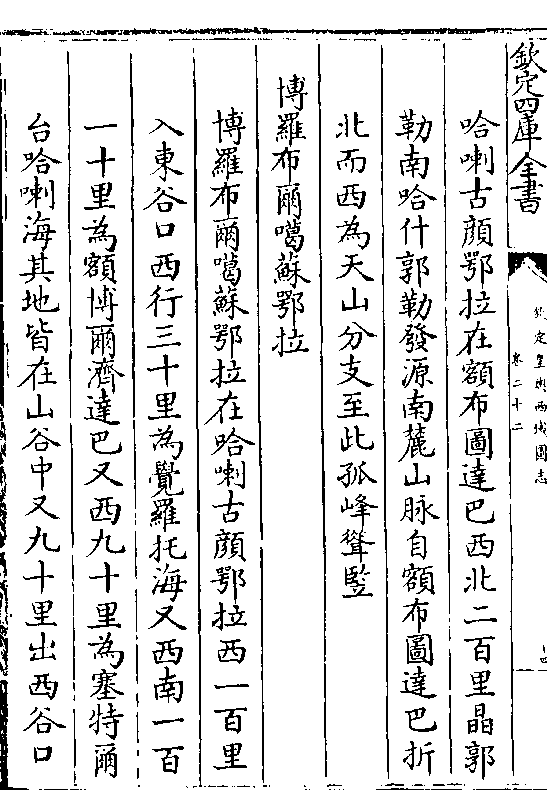 欽定四庫全書
欽定皇輿西域圖志
卷二十二
十四
哈喇古顔鄂拉在額布圖達巴西北二百里晶郭
勒南哈什郭勒發源南麓山脉自額布圖達巴折
北而西為天山分支至此孤峰聳豎
博羅布爾噶蘇鄂拉
博羅布爾噶蘇鄂拉在哈喇古顔鄂拉西一百里
入東谷口西行三十里為覺羅托海又西南一百
一十里為額博爾濟達巴又西九十里為塞特爾
台哈喇海其地皆在山谷中又九十里出西谷口